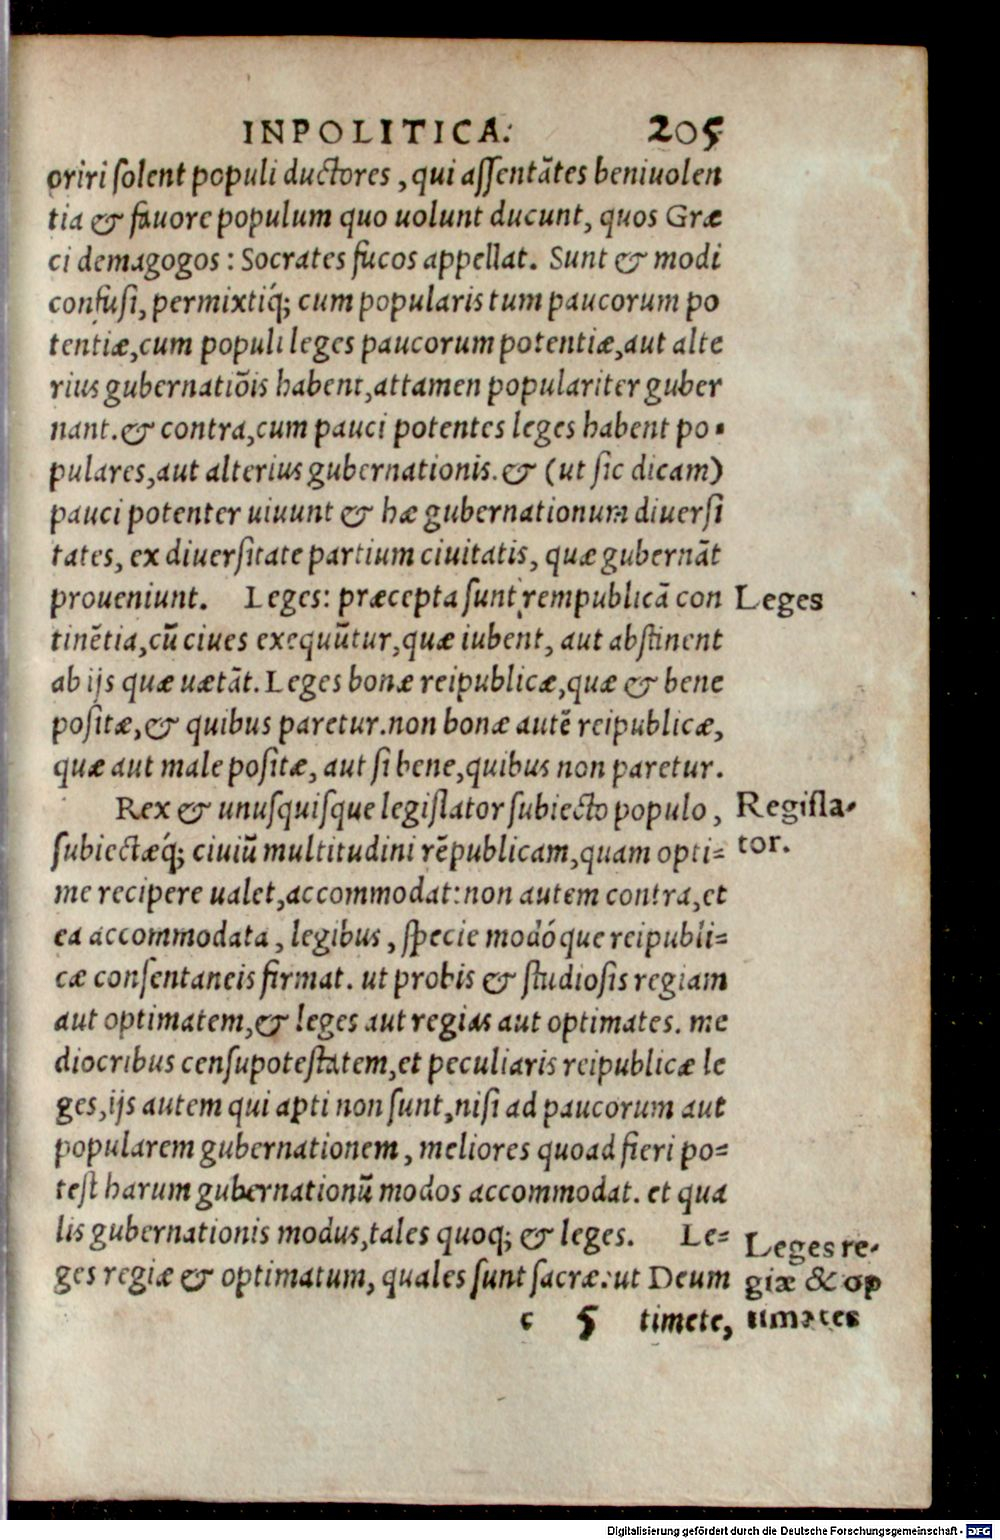 INPOLITICA. 205
oriri ſolent populi ductores, qui aſſentātes beniuolen
tia & fauore populum quo uolunt ducunt, quos Græ
ci demagogos: Socrates fucos appellat. Sunt & modi
confuſi, permixtiq́; cum popularis tum paucorum po
tentiæ, cum populi leges paucorum potentiæ, aut alte
rius gubernatiōis habent, attamen populariter guber
nant. & contra, cum pauci potentes leges habent po-
pulares, aut alterius gubernationis. & (ut ſic dicam)
pauci potenter uiuunt & hæ gubernationum diuerſi
tates, ex diuerſitate partium ciuitatis, quæ gubernāt
proueniunt. Leges: præcepta ſunt rempublicā con
Leges
tinētia, cū ciues exequūtur, quæ iubent, aut abſtinent
ab ijs quæ uætāt. Leges bonæ reipublicæ, quæ & bene
poſitæ, & quibus paretur. non bonæ autē reipublicæ,
quæ aut male poſitæ, aut ſi bene, quibus non paretur.
Rex & unuſquiſque legiſlator ſubiecto populo,
Regiſla-
ſubiectæq́; ciuiū multitudini rēpublicam, quam opti=
tor.
me recipere ualet, accommodat: non autem contra, et
ea accommodata, legibus, ſpecie modóque reipubli=
cæ conſentaneis firmat. ut probis & ſtudioſis regiam
aut optimatem, & leges aut regias aut optimates. me
diocribus cenſupoteſtatem, et peculiaris reipublicæ le
ges, ijs autem qui apti non ſunt, niſi ad paucorum aut
popularem gubernationem, meliores quoad fieri po=
teſt harum gubernationū modos accommodat. et qua
lis gubernationis modus, tales quoq; & leges. Le=
Leges re-
ges regiæ & optimatum, quales ſunt ſacræ: ut Deum
giæ & op
c 5 timete,
timates
Digitalisierung gefördert durch die Deutsche Forschungsgemeinschaft - DFG